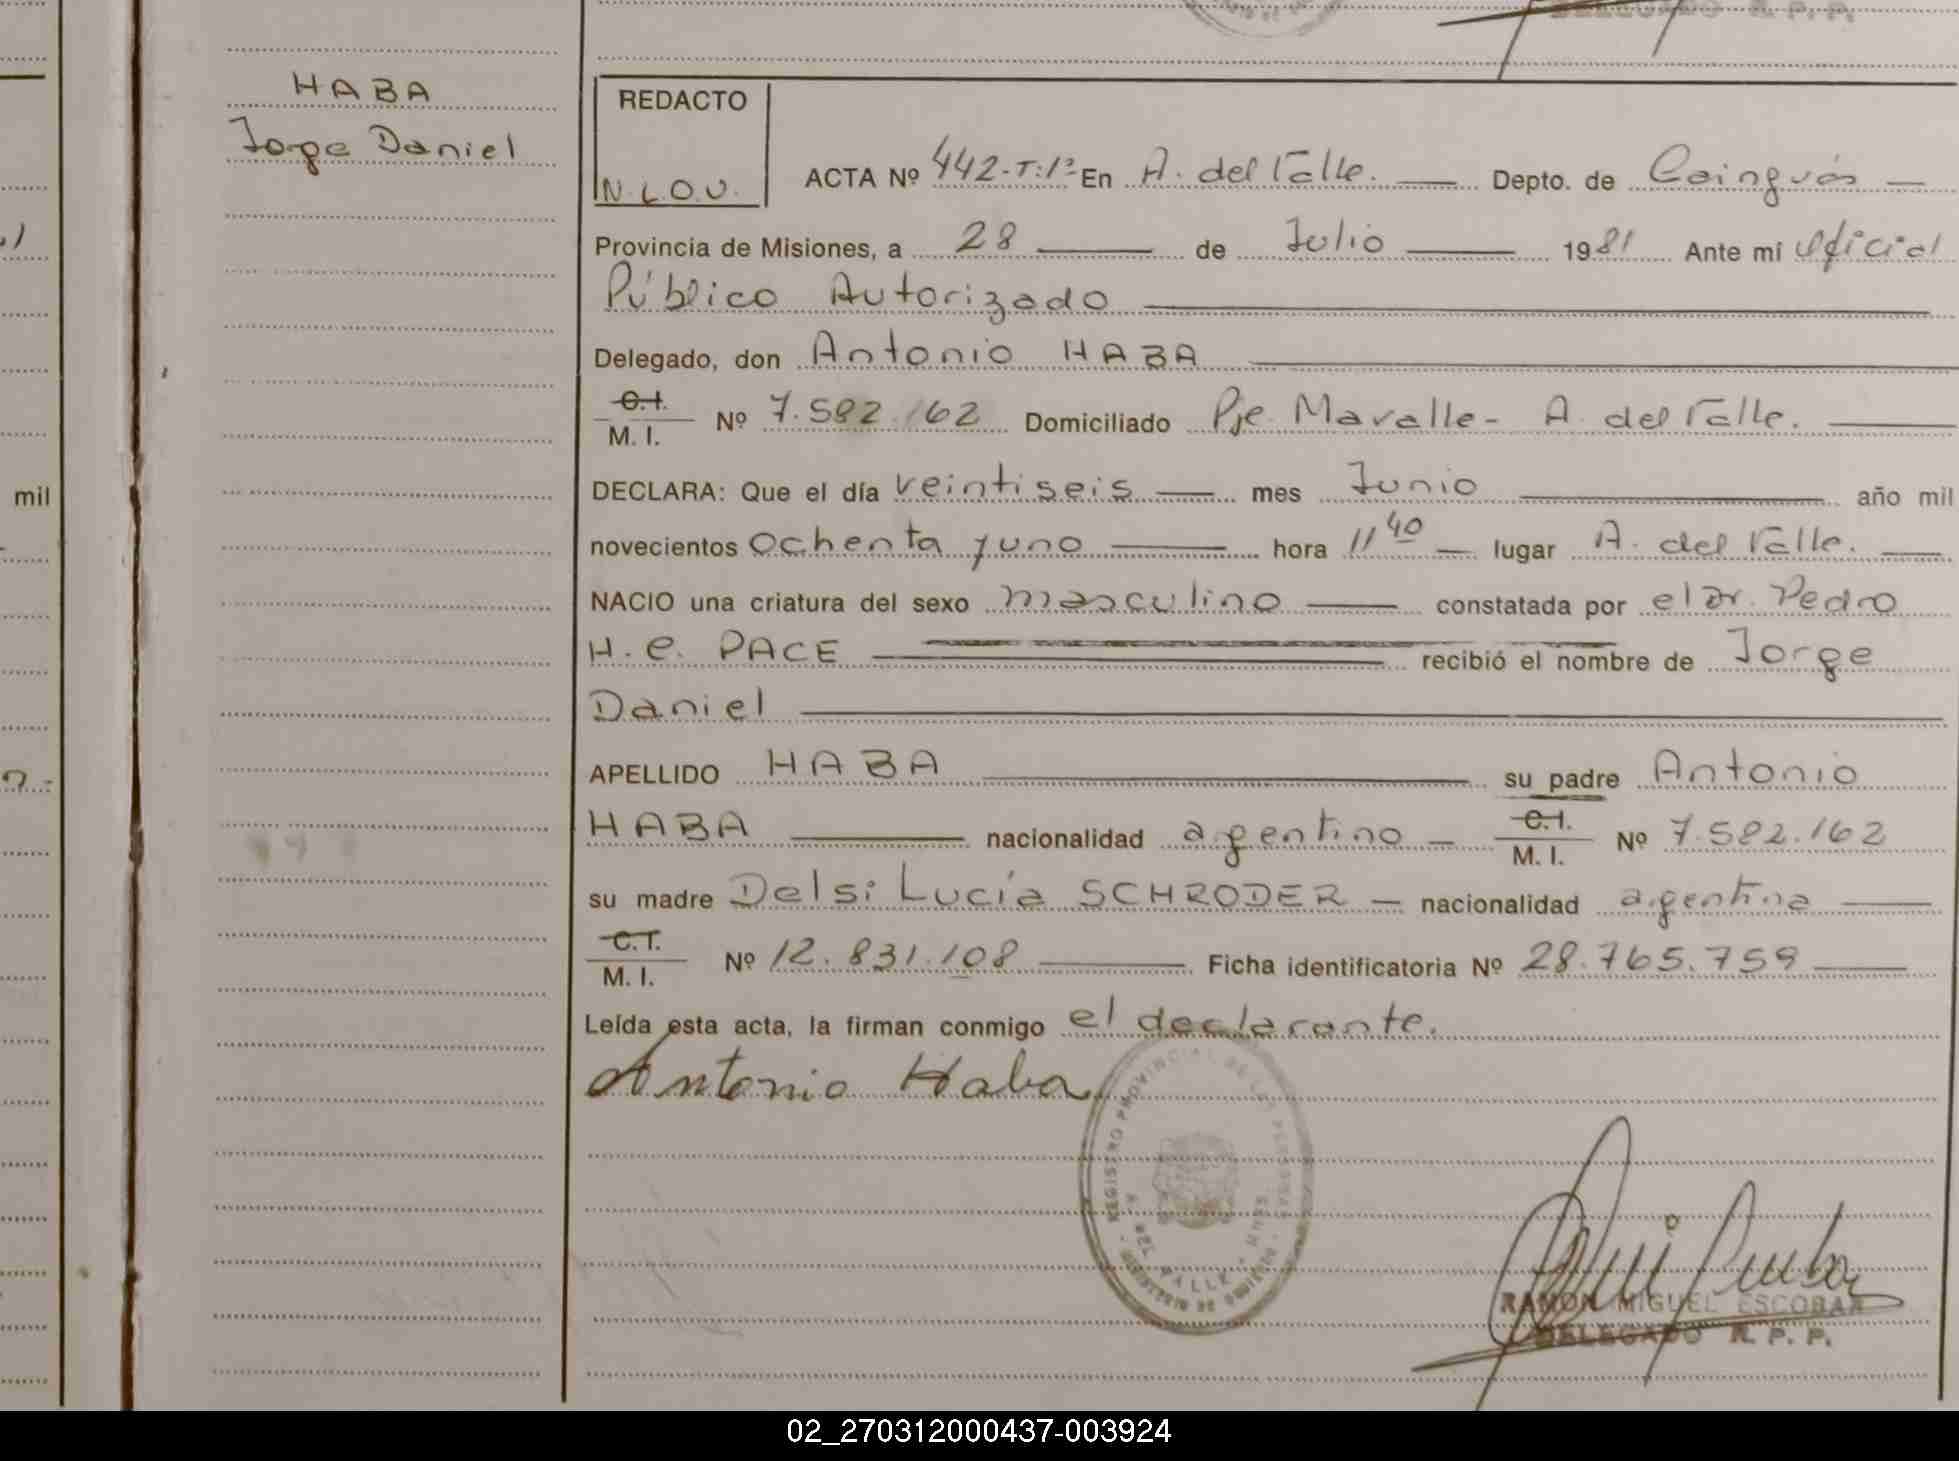 DELEGADO R. P. P.
HABA
Jorge Daniel
REDACTO
N.L.O.U.
ACTA Nº 442-T:1º En A. del Valle. Depto. de Cainguás
Provincia de Misiones, a 28 de Julio 1981 Ante mí Oficial
Público Autorizado
Delegado, don Antonio HABA
C.I. M. I. Nº 7.582.162 Domiciliado Pje. Mavalle - A. del Valle.
DECLARA: Que el día veintiseis mes Junio año mil
novecientos ochenta y uno hora 11 40 lugar A. del Valle.
NACIO una criatura del sexo masculino constatada por el Dr. Pedro
H. C. PACE recibió el nombre de Jorge
Daniel
APELLIDO HABA su padre Antonio
HABA nacionalidad argentino C.I. M. I. Nº 7.582.162
su madre Delsi Lucía SCHRODER nacionalidad argentina
C.I. M. I. Nº 12.831.108 Ficha identificatoria Nº 28.765.759
Leída esta acta, la firman conmigo el declarante.
Antonio Haba
REGISTRO PROVINCIAL DE LAS PERSONAS
A. DEL VALLE - MNES
MINISTERIO DE GOBIERNO
RAMON MIGUEL ESCOBAR
DELEGADO R. P. P.
mil
02_270312000437-003924